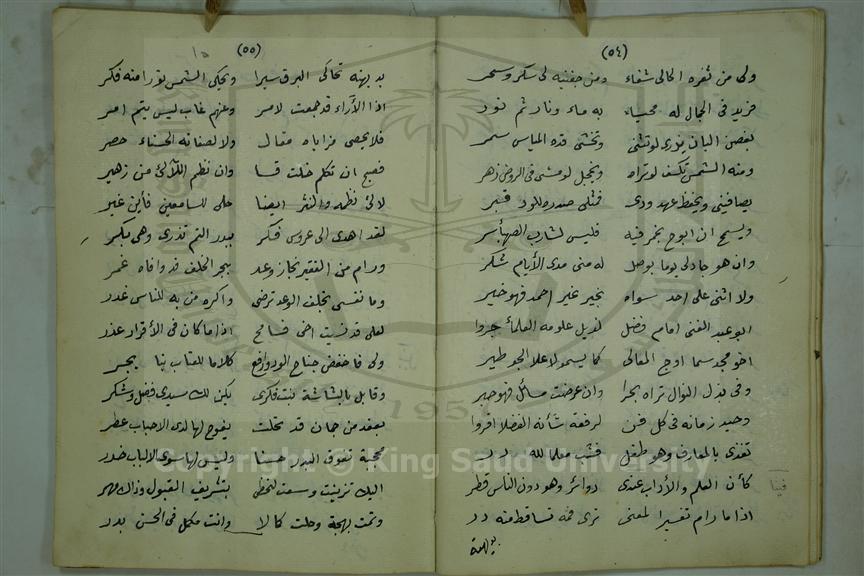 (٥٤)
ولى من ثغره الحالى شفاء ومن جفنيه لى سكر وسحر
فريد فى الجمال له محياء به ماء ونار ثم نور
بغصن البان يزرى لو تثنى وتخشى قده المياس سمر
ومنه الشمس تكسف لو تراه ويخجل لو مشى فى الروض زهر
يصافينى ويحفظ عهد ودى فمثلى صدره للود قبر
ويسمح ان ابوح بخمر فيه فليس لشارب الصهبا سر
وان هو جاد لى يوما بوصل له منى مدى الأيام شكر
ولا اثنى على احد سواه بخير غير احمد فهو خير
ابو عبد الغنى امام فضل علومه العلماء جروا
اخو مجد سما اوج المعالى كما يسمو لاعلا الجو طير
وفى بذل النوال تراه بحرا وان عرضت مسائل فهو حبر
وحيد زمانه فى كل فن لرفعة شأنه الفضلا اقروا
تغذى بالمعارف وهو طفل فشب معلما لله در
كأن العلم والأداب عندى دوائر وهو دون الناس قطر
اذا ما رام تفسيرا لمعنى ترى فمه تساقط منه در
بديهة
(٥٥)
بديهته تحاكى البرق سيرا ويحكى الشمس نورا منه فكر
اذا الأراء قد جمعت لامر وعنهم غاب ليس يتم امر
فلا يحصى مزاياه مقال ولا لصفاته الحسناء حصر
فصيح ان تكلم خلت قسا وان نظم اللآلئ من زهير
لآلئ نظمه والنثر ايضا على للسامعين فأين غير
لقد اهدى الى عروس فكر ببدر التم تزرى وهى بكر
ورام من الفقير نجاز وعد ببحر الخلف قد وافاه غمر
وما نفسى بخلف الوعد ترضى واكره من به للناس غدر
لعلى قد نسيت اخى فسامح اذا ما كان فى الأقرار عذر
ولى فاخفض جناح الود وارفع كلاما للعتاب بنا يجر
وقابل بالبشاشة بنت فكرى يكن لك سيدى فضل وشكر
بعقد من جمان قد تحلت يفوح لها لدى الاحباب عطر
محجبة تفوق البدر حسنا وليس لها سوى الالباب خدر
اليك تزينت وسعت لتحظى بتشريف القبول وذاك مهر
وتمت بهجة وحلت كمالا وانت مكمل فى الحسن بدر
Copyright © King Saud University
1957